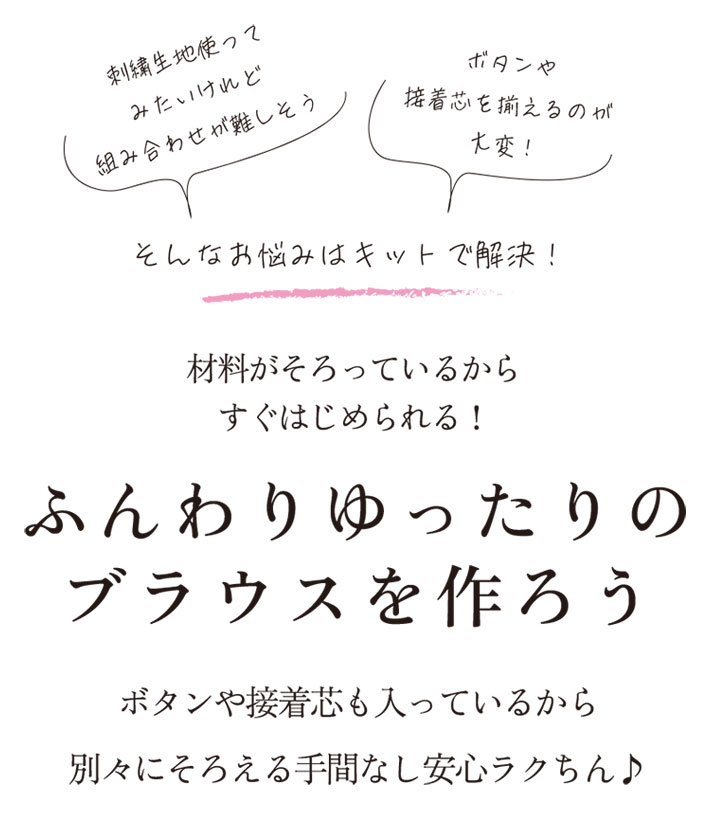 刺繍生地使って
みたいけれど
組み合わせが難しそう
ボタンや
接着芯を揃えるのが
大変！
そんなお悩みはキットで解決！
材料がそろっているから
すぐはじめられる！
ふんわりゆったりの
ブラウスを作ろう
ボタンや接着芯も入っているから
別々にそろえる手間なし安心ラクちん♪